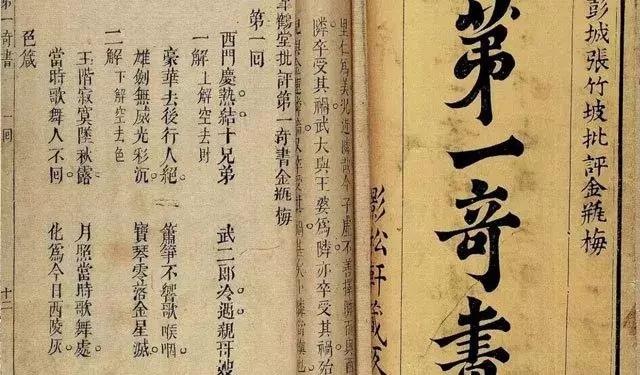 彭城張竹坡批評金瓶梅
第一奇書
影松軒藏
隣卒受其禍武大與王婆爲隣亦卒受其禍殆
鶴堂批評第一奇書金瓶梅
第一回
西門慶熱結十兄弟　武二郎冷遇親哥嫂
一解　上解空去財
豪華去後行人絕　簫箏不響歌喉咽
雄劍無威光彩沉　寶琴零落金星滅
二解　下解空去色
玉階寂寞墜秋露　月照當時歌舞處
當時歌舞人不回　化爲今日西陵灰
色箴
第一奇書　一回　十二